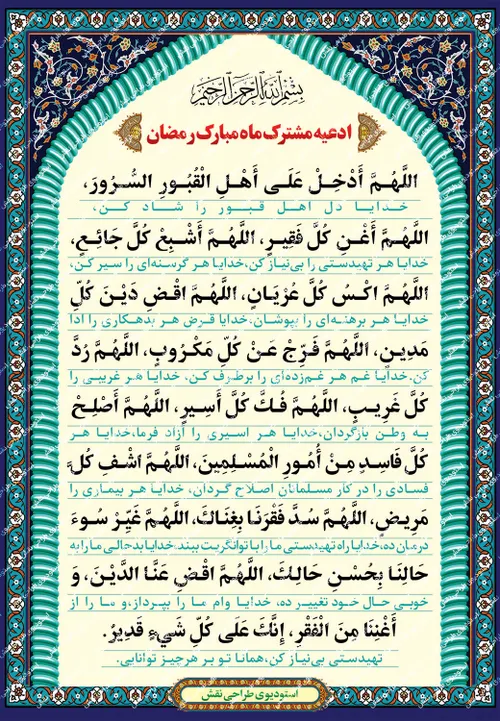 بِسْمِ اللَّهِ الرَّحْمَنِ الرَّحِيمِ
ادعیه مشترک ماه مبارک رمضان
اَللَّهُمَّ أَدْخِلْ عَلَى أَهْلِ الْقُبُورِ السُّرُورَ،
خدایا دل اهل قبور را شاد کن،
اَللَّهُمَّ أَغْنِ كُلَّ فَقِيرٍ، اَللَّهُمَّ أَشْبِعْ كُلَّ جَائِعٍ،
خدایا هر تهیدستی را بی‌نیاز کن،خدایا هر گرسنه‌ای را سیر کن،
اَللَّهُمَّ اكْسُ كُلَّ عُرْيَانٍ، اَللَّهُمَّ اقْضِ دَيْنَ كُلِّ
خدایا هر برهنه‌ای را بپوشان،خدایا قرض هر بدهکاری را ادا
مَدِينٍ، اَللَّهُمَّ فَرِّجْ عَنْ كُلِّ مَكْرُوبٍ، اَللَّهُمَّ رُدَّ
کن،خدایا غم هر غم‌زده‌ای را برطرف کن، خدایا هر غریبی را
كُلَّ غَرِيبٍ، اَللَّهُمَّ فُكَّ كُلَّ أَسِيرٍ، اَللَّهُمَّ أَصْلِحْ
به وطن بازگردان،خدایا هر اسیری را آزاد فرما،خدایا هر
كُلَّ فَاسِدٍ مِنْ أُمُورِ الْمُسْلِمِينَ، اَللَّهُمَّ اشْفِ كُلَّ
فسادی را در کار مسلمانان اصلاح گردان، خدایا هر بیماری را
مَرِيضٍ، اَللَّهُمَّ سُدَّ فَقْرَنَا بِغِنَاكَ، اَللَّهُمَّ غَيِّرْ سُوءَ
درمان ده،خدایا راه تهیدستی ما را با توانگریت ببند،خدایا بدحالی ما را به
حَالِنَا بِحُسْنِ حَالِكَ، اَللَّهُمَّ اقْضِ عَنَّا الدَّيْنَ، وَ
خوبی حال خود تغییر ده، خدایا وام ما را بپرداز،و ما را از
أَغْنِنَا مِنَ الْفَقْرِ، إِنَّكَ عَلَى كُلِّ شَيْءٍ قَدِيرٌ.
تهیدستی بی‌نیاز کن،همانا تو بر هرچیز توانایی.
استودیوی طراحی نقش